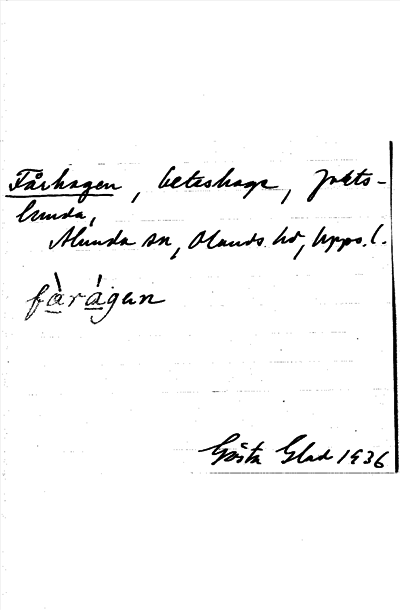 Fårhagen, beteshage, Jokts-
lunda,
Alunda sn, Olands hd, Upps. l.
fàrágen
Gösta Glad 1936